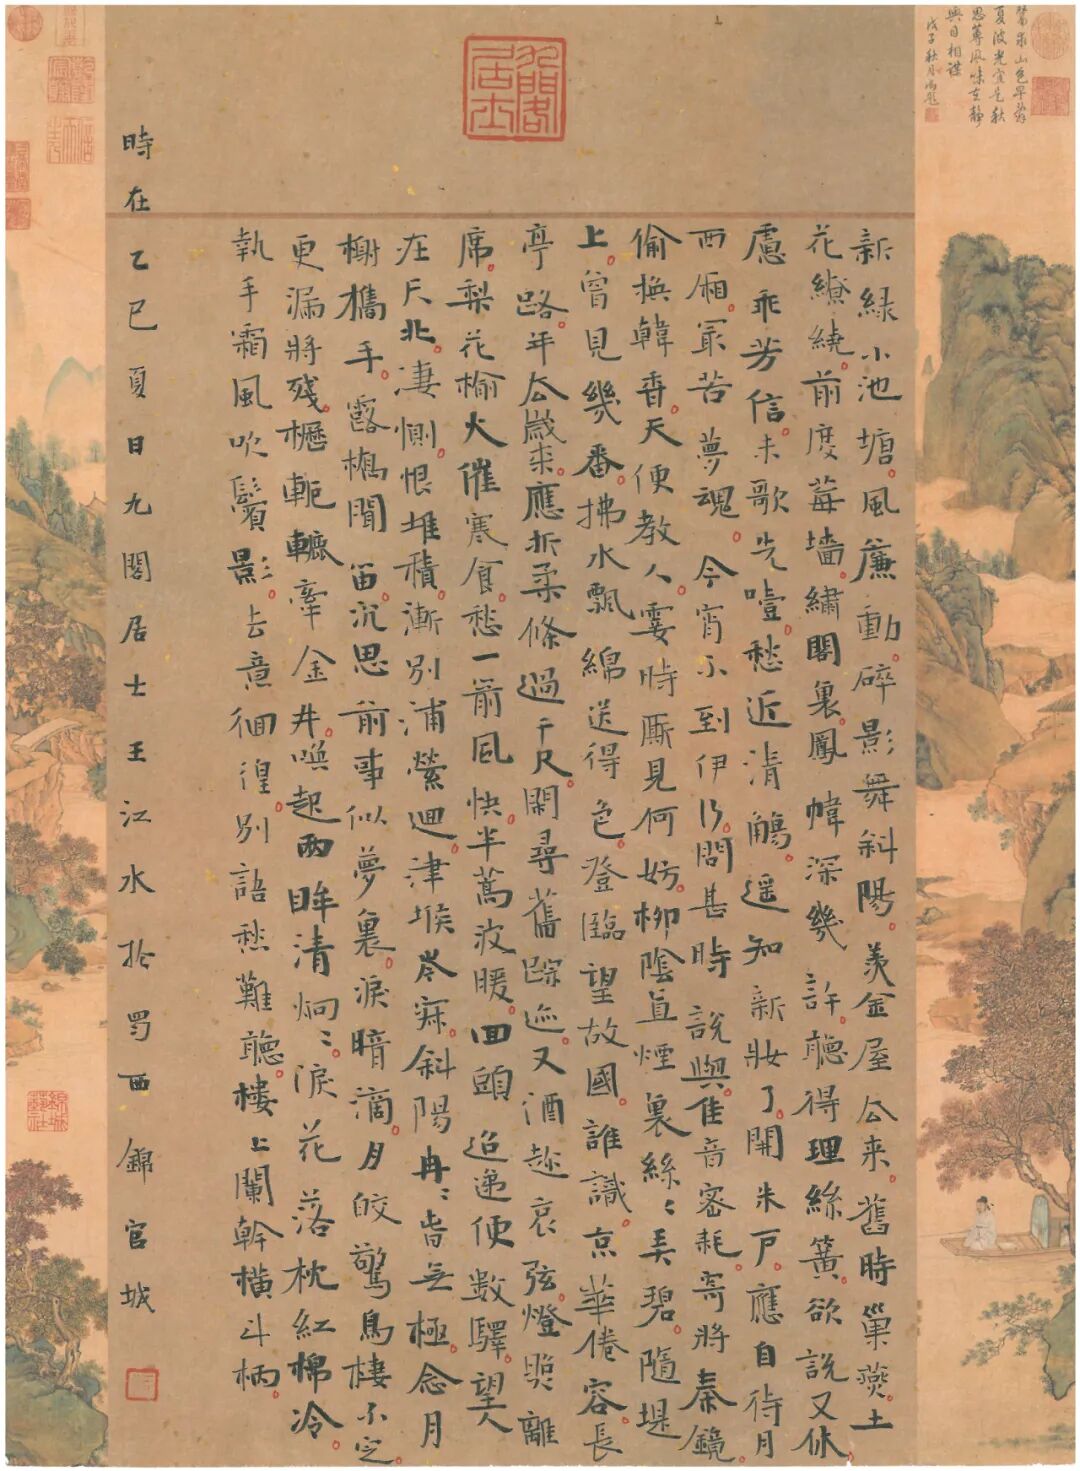 思蓴風味在靜
與目相謀
新綠小池塘風簾動碎影舞斜陽羨金屋去来舊時巢燕土
花繚繞前度莓墻繡閣裏鳳幃深幾許聽得理絲簧欲說又休
慮乖芳信未歌先噎愁近清觴遥知新妝了開朱戶應自待月
西廂冣苦夢魂今宵不到伊行問甚時說與佳音密耗寄將秦鏡
偷換韓香天便教人霎時厮見何妨柳陰直煙裏絲〻弄碧隨堤
上曾見幾番拂水飄綿送得色登臨望故國誰識京華倦容長
亭路年去歲来應折柔條過千尺閑尋舊踪迹又酒趁哀弦燈照離
席梨花榆火催寒食愁一箭風快半蒿波暖回頭迢遞便數驛望人
在天北凄惻恨堆積漸別浦縈迴津堠岑寂斜陽冉〻春無極念月
榭攜手露橋聞笛沉思前事似夢裏淚暗滴月皎驚烏棲不定
更漏將殘轆牽金井喚起兩眸清炯〻淚花落枕紅棉冷
執手霜風吹鬢影去意徊徨別語愁難聽樓上闌幹橫斗柄
時在乙巳夏日九閣居士王江水於蜀西錦官城